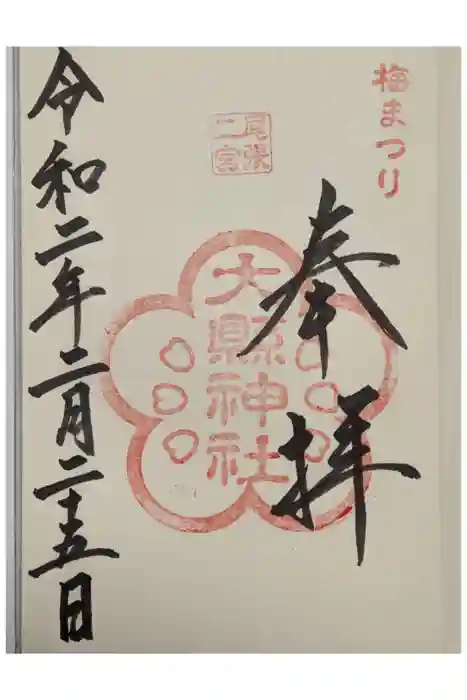 梅まつり
奉拝
尾張
二宮
大縣神社
令和二年二月二十五日